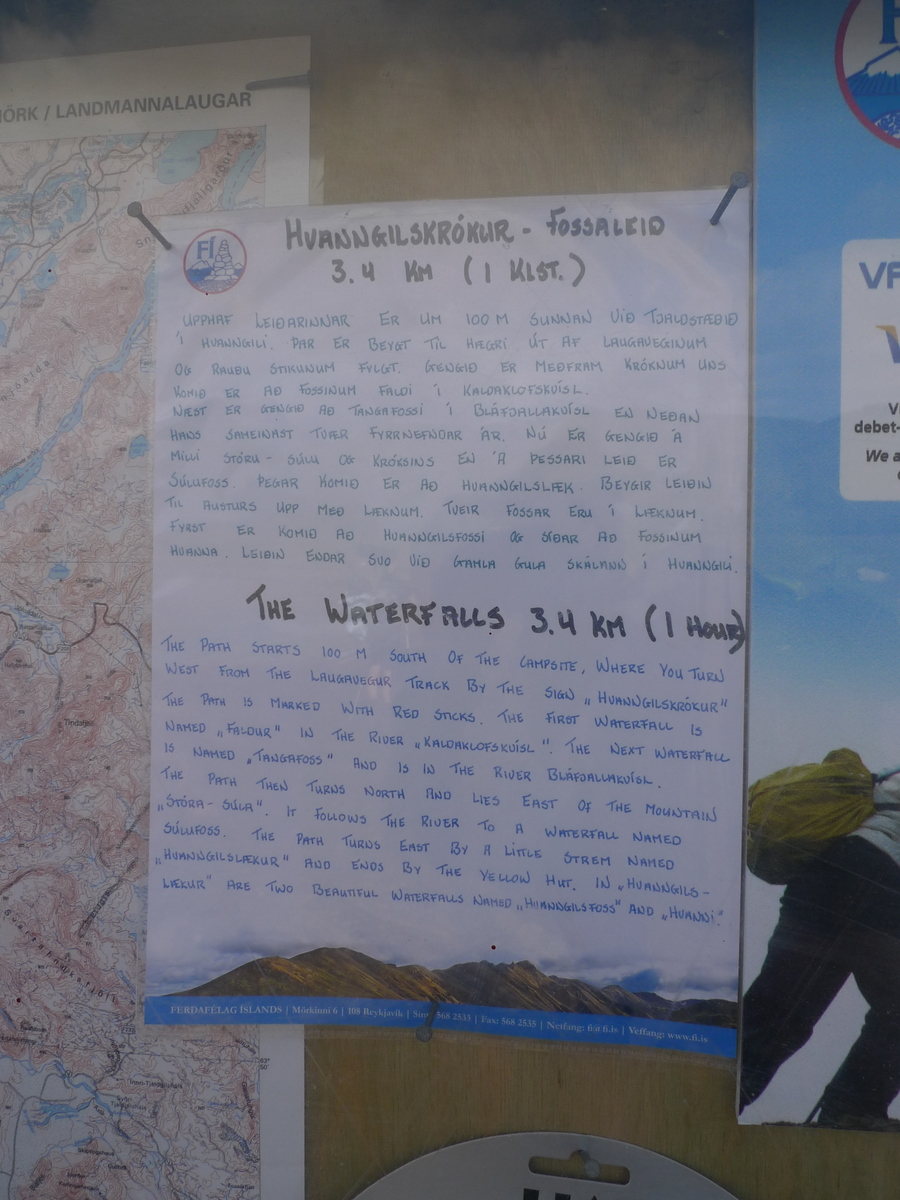 ÖRK / LANDMANNALAUGAR
FÍ
HVANNGILSKRÓKUR - FOSSALEIÐ
3.4 KM (1 KLST.)
UPPHAF LEIÐARINNAR ER UM 100 M SUNNAN VIÐ TJALDSTÆÐIÐ
Í HVANNGILI. ÞAR ER BEYGT TIL HÆGRI ÚT AF LAUGAVEGINUM
OG RAUÐU STIKUNUM FYLGT. GENGIÐ ER MEÐFRAM KRÓKNUM UNS
KOMIÐ ER AÐ FOSSINUM FALDI Í KALDAKLOFSKVÍSL.
NÆST ER GENGIÐ AÐ TANGAFOSSI Í BLÁFJALLAKVÍSL EN NEÐAN
HANS SAMEINAST TVÆR FYRRNEFNDAR ÁR. NÚ ER GENGIÐ Á
MILLI STÓRU - SÚLU OG KRÓKSINS EN Á ÞESSARI LEIÐ ER
SÚLUFOSS. ÞEGAR KOMIÐ ER AÐ HVANNGILSLÆK. BEYGIR LEIÐIN
TIL AUSTURS UPP MEÐ LÆKNUM. TVEIR FOSSAR ERU Í LÆKNUM.
FYRST ER KOMIÐ AÐ HVANNGILSFOSSI OG SÍÐAR AÐ FOSSINUM
HVANNA. LEIÐIN ENDAR SVO VIÐ GAMLA GULA SKÁLANN Í HVANNGILI.
THE WATERFALLS 3.4 KM (1 HOUR)
THE PATH STARTS 100 M SOUTH OF THE CAMPSITE, WHERE YOU TURN
WEST FROM THE LAUGAVEGUR TRACK BY THE SIGN „HVANNGILSKRÓKUR"
THE PATH IS MARKED WITH RED STICKS. THE FIRST WATERFALL IS
NAMED „FALDUR" IN THE RIVER „KALDAKLOFSKVÍSL". THE NEXT WATERFALL
IS NAMED „TANGAFOSS" AND IS IN THE RIVER BLÁFJALLAKVÍSL.
THE PATH THEN TURNS NORTH AND LIES EAST OF THE MOUNTAIN
„STÓRA - SÚLA". IT FOLLOWS THE RIVER TO A WATERFALL NAMED
SÚLUFOSS. THE PATH TURNS EAST BY A LITTLE STREM NAMED
„HVANNGILSLÆKUR" AND ENDS BY THE YELLOW HUT. IN „HVANNGILS-
LÆKUR" ARE TWO BEAUTIFUL WATERFALLS NAMED „HVANNGILSFOSS" AND „HVANNI".
FERÐAFÉLAG ÍSLANDS | Mörkinni 6 | 108 Reykjavík | Sími 568 2535 | Fax: 568 2535 | Netfang: fi@fi.is | Veffang: www.fi.is
VF
debet-
We a